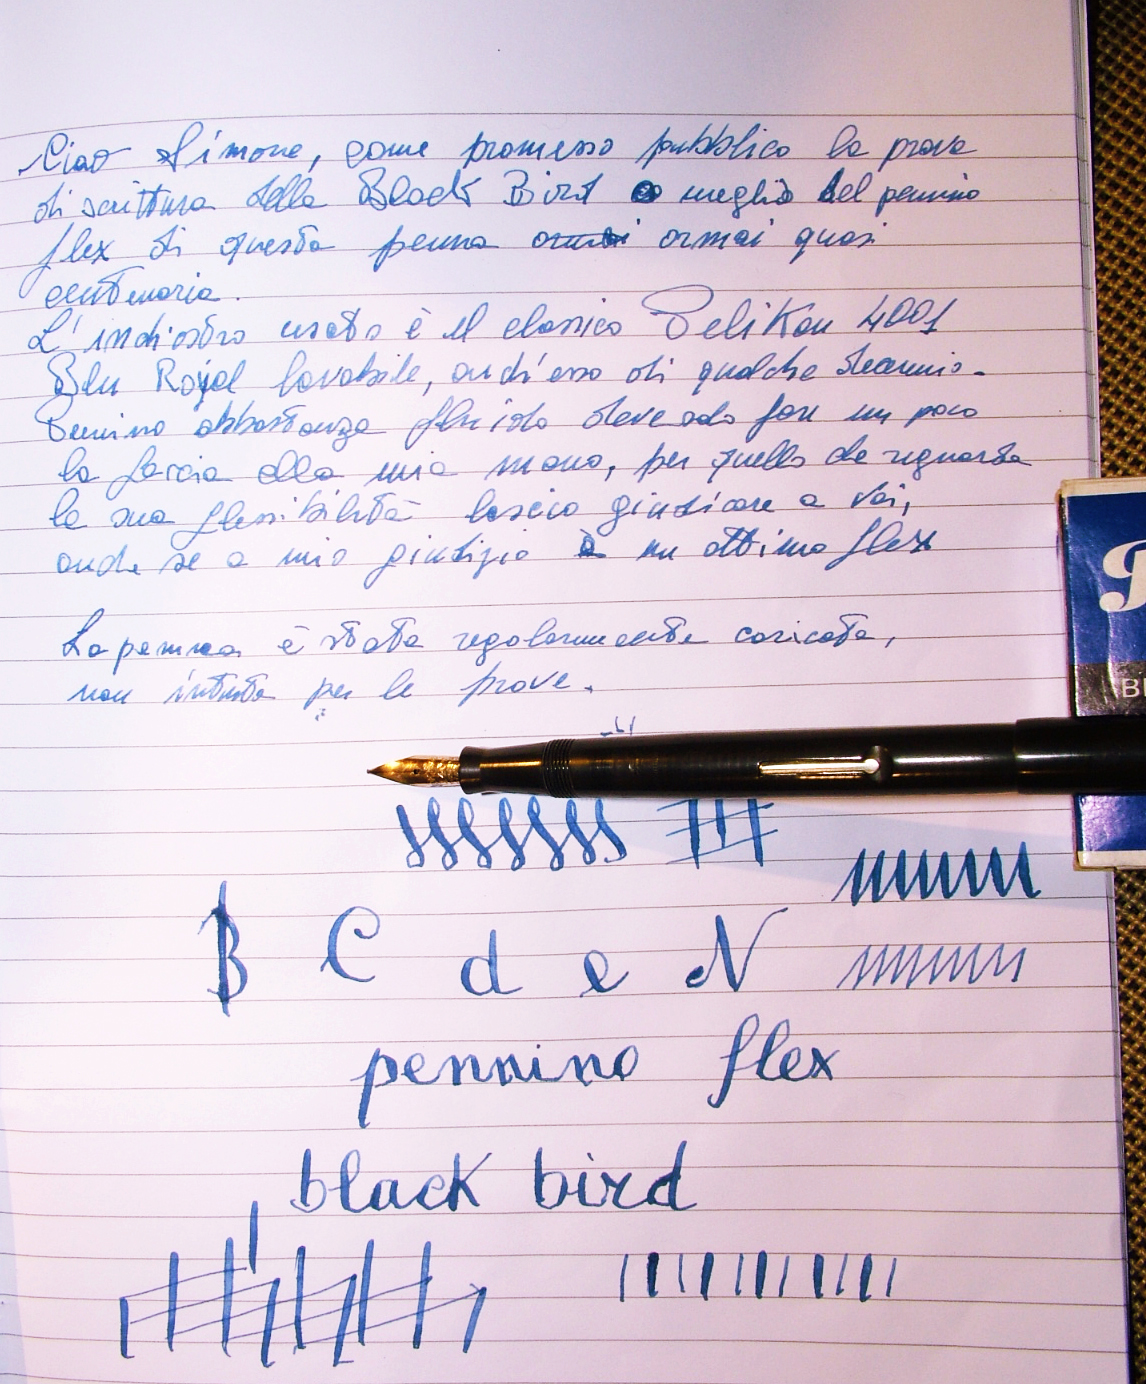 Ciao Simone, come promesso pubblico la prova
di scrittura della Black Bird o meglio del pennino
flex di questa penna ormai ormai quasi
centenaria.
L'inchiostro usato è il classico Pelikan 4001
Blu Royal lavabile, anch'esso di qualche decennio.
Pennino abbastanza fluido deve solo fare un poco
la faccia alla mia mano, per quello che riguarda
la sua flessibilità lascio giudicare a voi,
anche se a mio giudizio è un ottimo flex
La penna è stata regolarmente caricata,
non intinta per le prove.
B C d e N
pennino flex
black bird